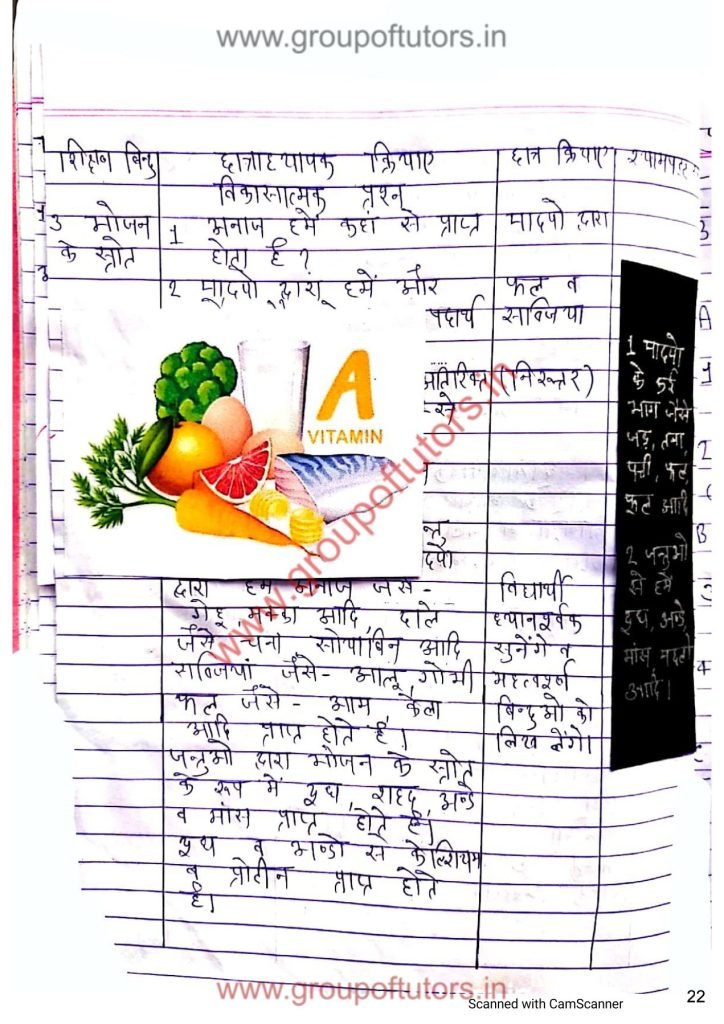 www.groupoftutors.in
शिक्षण बिन्दु छात्राध्यापक क्रियाए छात्र क्रियाए श्यामपट्ट
विकासात्मक प्रश्न
3 भोजन 1 अनाज हमें कहां से प्राप्त पादपो द्वारा
के स्त्रोत होता है ?
2 पादपो द्वारा हमें और फल व
पदार्थ सब्जिया
अतिरिक्त (निरूत्तर)
A
VITAMIN
द्वारा हमे अनाज जैसे - विद्यार्थी
गेहू मक्का आदि, दाले ध्यानपूर्वक
जैसे - चना सोयाबिन आदि सुनेंगे व
सब्जियां जैसे - आलू, गोभी महत्वपूर्ण
फल जैसे - आम, केला बिन्दुओ को
आदि प्राप्त होते है। लिख लेंगे।
जन्तुओ द्वारा भोजन के स्त्रोत
के रूप में दूध, शहद, अन्डे
व मांस प्राप्त होते है।
दूध व अन्डो से केल्शियम
व प्रोटीन प्राप्त होते
है।
1 पादपो
के कई
भाग जैसे
जड़, तना,
पत्ती, फल,
फूल आदि
2 जन्तुओ
से हमें
दूध, अन्डे
मांस, मछली
आदि।
www.groupoftutors.in
www.groupoftutors.in
Scanned with CamScanner
22